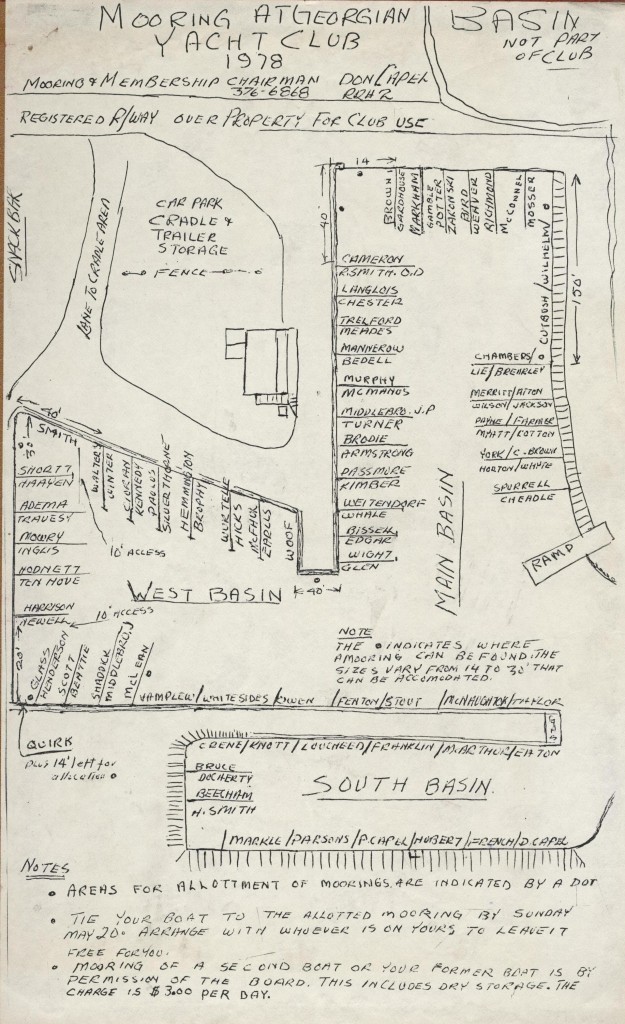 MOORING AT GEORGIAN
YACHT CLUB
1978
MOORING & MEMBERSHIP CHAIRMAN DON CAPEL
376-6868 RR#2
BASIN
NOT PART
OF CLUB
REGISTERED R/WAY OVER PROPERTY FOR CLUB USE
SNACK BAR
LANE TO CRADLE AREA
CAR PARK
CRADLE &
TRAILER
STORAGE
FENCE
14
40'
BROWN
GARDHOUSE
MARKHAM
GAMBLE
POTTER
ZARONSKI
BIRD
WEAVER
RICHMOND
McCONNEL
MOSSER
CUTBUSH/WILHELM/
150'
CAMERON
R.SMITH. O.D
LANGLOIS
CHESTER
TRELFORD
MEADES
MANNEROW
BEDELL
MURPHY
McMANUS
MIDDLEBRO. J.P
TURNER
BRODIE
ARMSTRONG
PASSMORE
KIMBER
WEITENDORF
WHALE
BISSELL
EDGAR
WIGHT
GLEN
CHAMBERS/
LIE/BREARLEY
MERRITT/AITON
WILSON/JACKSON
PAYNE/FARMER
MYATT/COTTON
YORK/C.BROWN
HORTON/WHYTE
SPURRELL
CHEADLE
MAIN BASIN
RAMP
40'
SMITH
30'
SHORTT
HAAYEN
ADEMA
TRAVESY
MOWRY
INGLIS
HODNETT
TEN HOVE
HARRISON
NEWELL
10' ACCESS
10' ACCESS
WALTORY
WINTER
KENNEDY
PAULUS
SILVERTHORNE
HEMMINGTON
BROPHY
WURTELE
HICKS
McPHUL
EARLLS
WOOF
40'
WEST BASIN
20'
GLASS
HENDERSON
SCOTT
BEATTIE
SHADDICK
MIDDLEBRO.J
McLEAN
VAMPLEW/WHITESIDES/OWEN /FENTON/STOUT /McNAUGHTON/TAYLOR
NOTE
THE • INDICATES WHERE
A MOORING CAN BE FOUND. THE
SIZES VARY FROM 14 TO 30' THAT
CAN BE ACCOMODATED.
QUIRK
Plus 14' left for
allocation •
CRENE/KNOTT/LOUCHEED/FRANKLIN/McARTHUR/EATON
BRUCE
DOCHERTY
BEECHAM
H.SMITH
SOUTH BASIN.
/MARKLE/PARSONS/P.CAPEL/HUBERT/FRENCH/D.CAPEL
NOTES
• AREAS FOR ALLOTTMENT OF MOORINGS ARE INDICATED BY A DOT
• TIE YOUR BOAT TO THE ALLOTTED MOORING BY SUNDAY
MAY 20. ARRANGE WITH WHOEVER IS ON YOURS TO LEAVE IT
FREE FOR YOU.
• MOORING OF A SECOND BOAT OR YOUR FORMER BOAT IS BY
PERMISSION OF THE BOARD. THIS INCLUDES DRY STORAGE. THE
CHARGE IS $3.00 PER DAY.